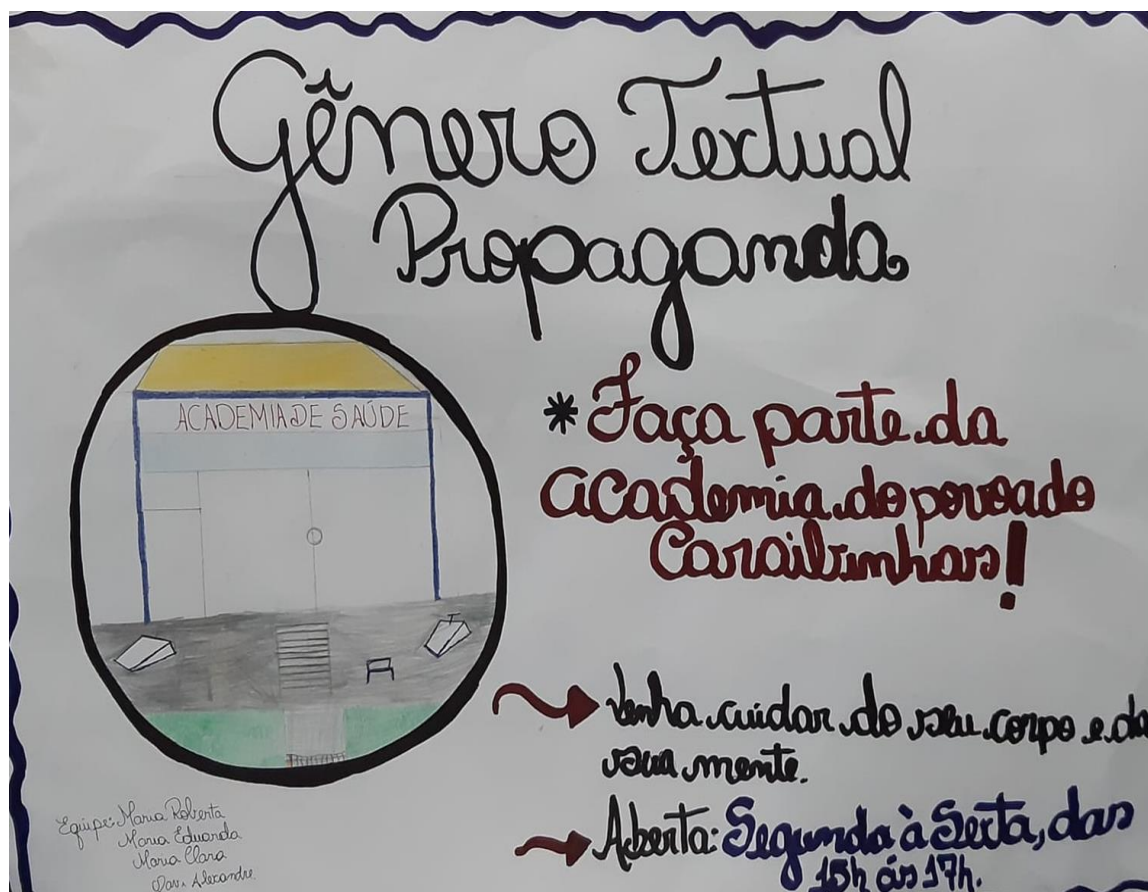 Gênero Textual
Propaganda
ACADEMIA DE SAÚDE
* Faça parte da
academia do povoado
Caraibinhas!
Venha cuidar do seu corpo e da
sua mente.
Aberta: Segunda à Sexta, das
15h ás 17h.
Equipe: Maria Roberta
Maria Eduarda
Maria Clara
Davi Alexandre